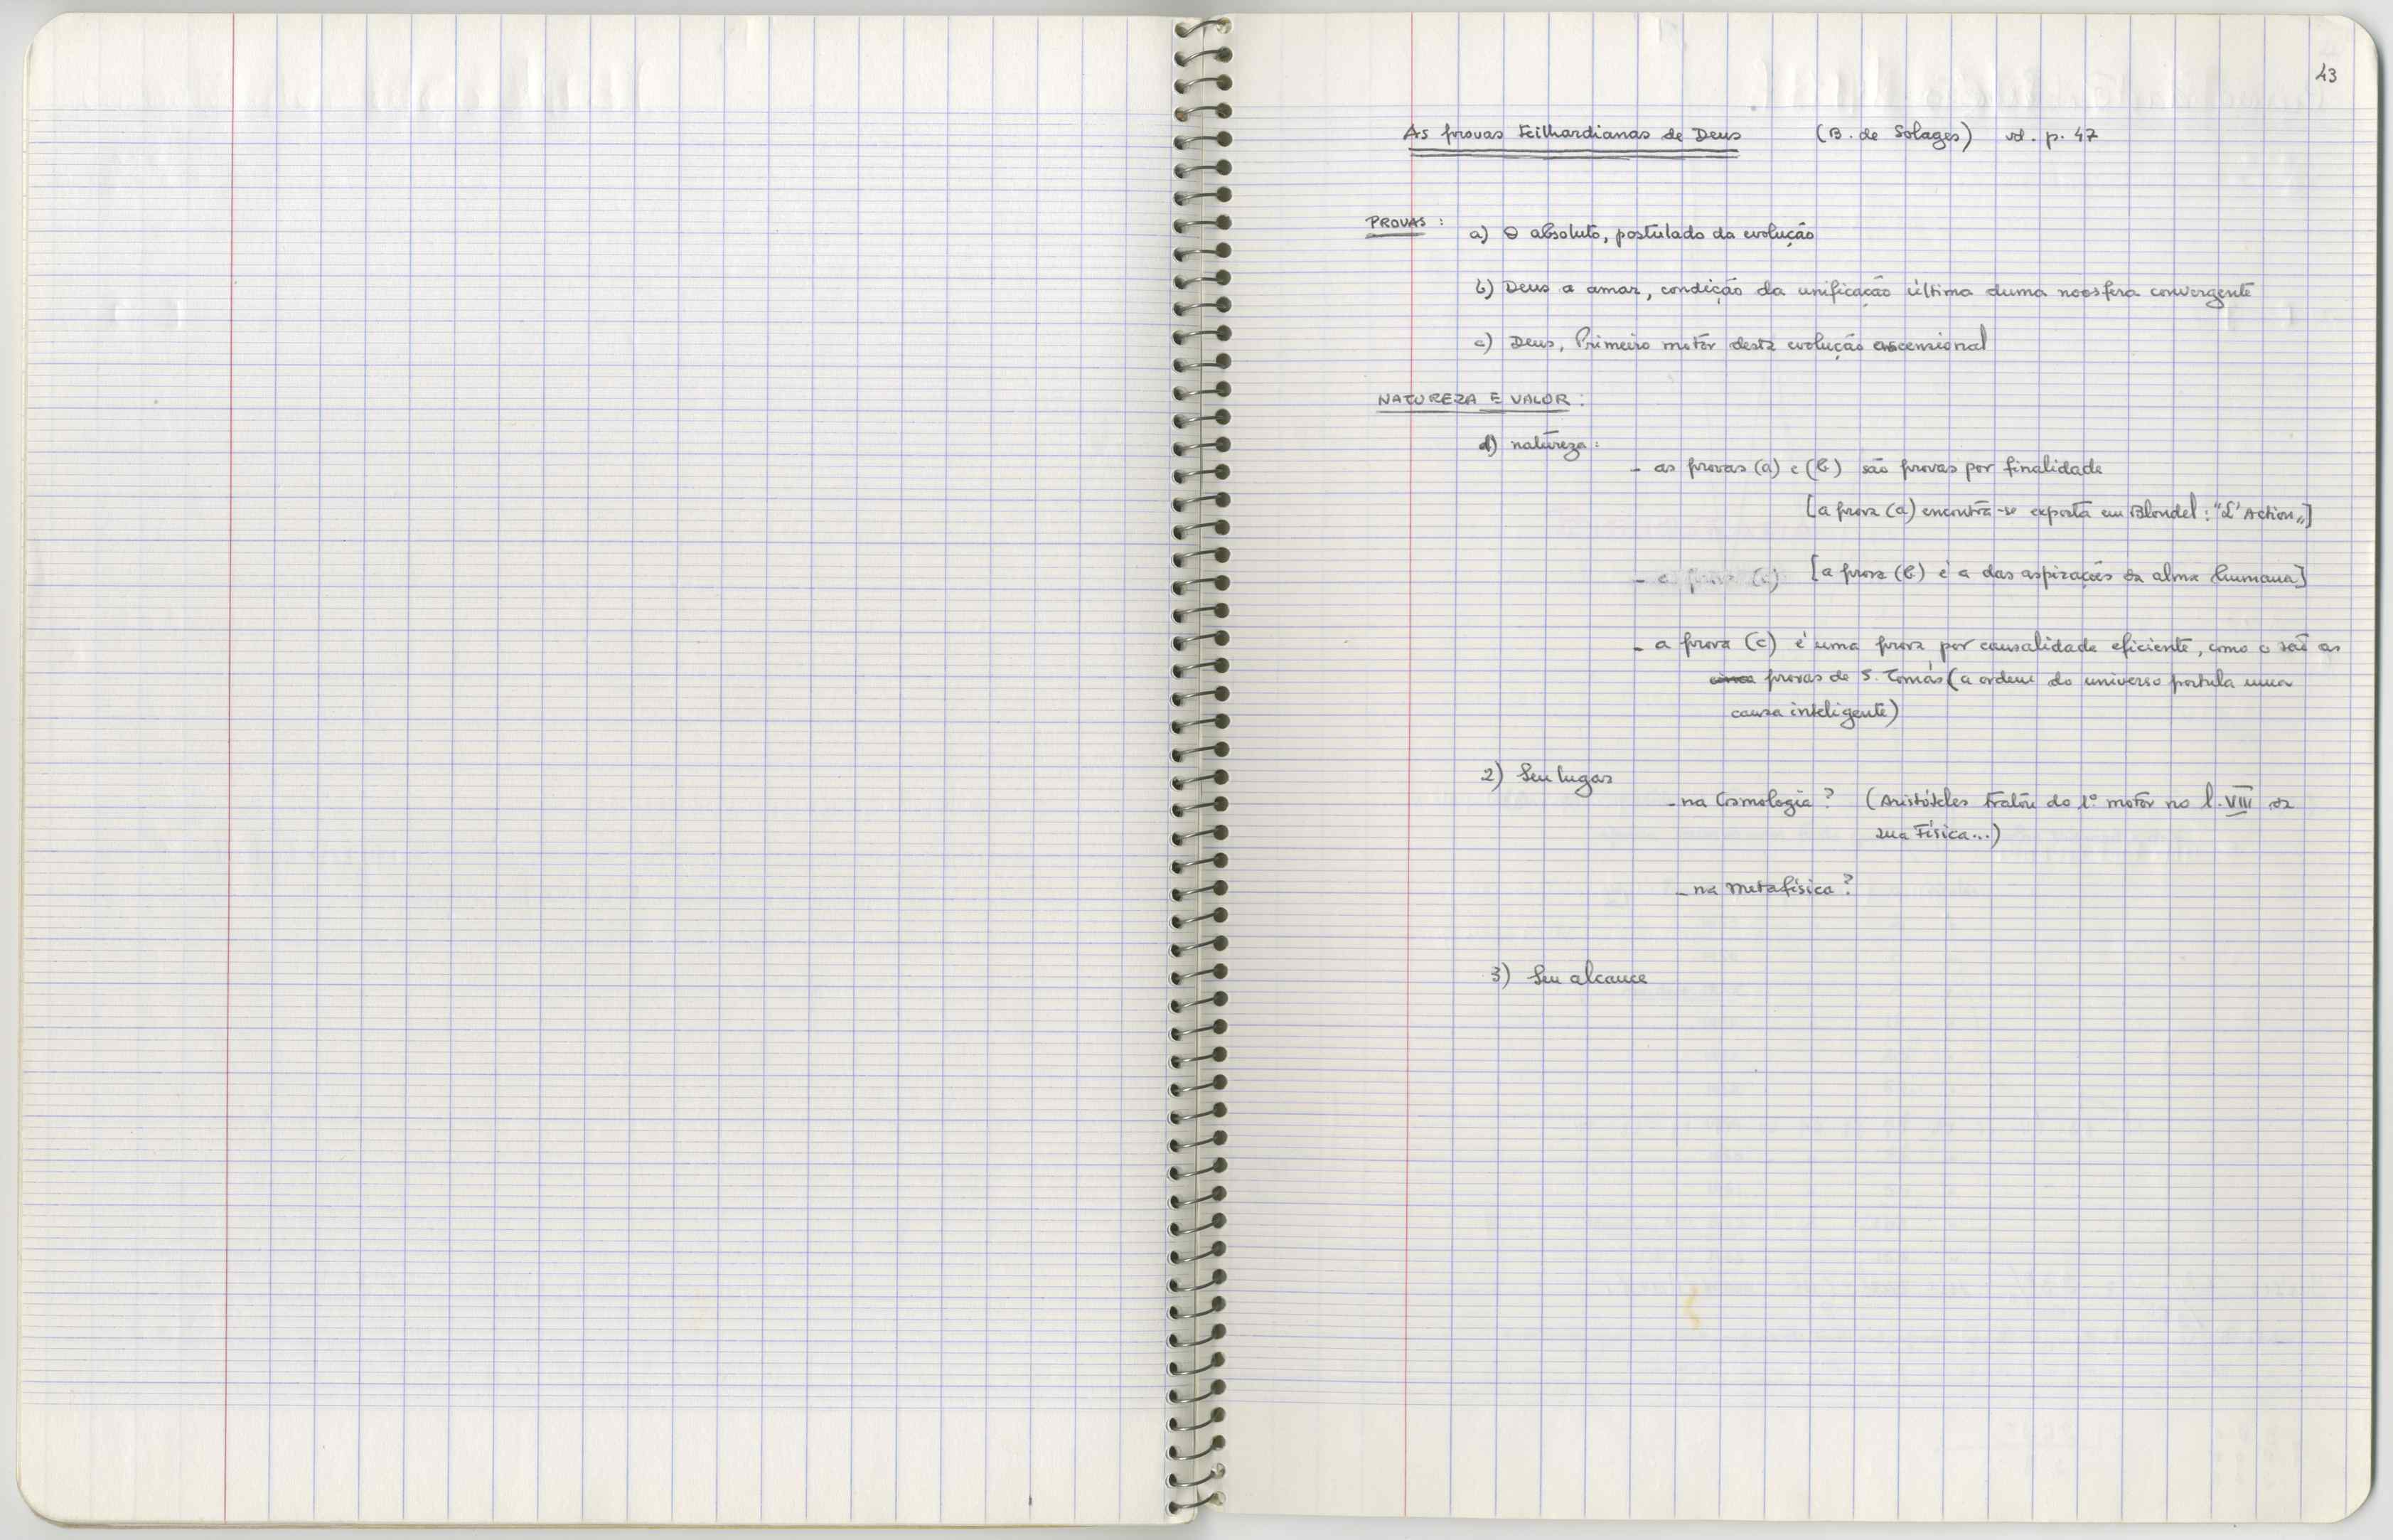 43
As provas teilhardianas de Deus (B. de Solages) vd. p. 47
PROVAS :
a) O absoluto, postulado da evolução
b) Deus a amar, condição da unificação última duma noosfera convergente
c) Deus, Primeiro motor desta evolução ascensional
NATUREZA E VALOR :
1) natureza :
- as provas (a) e (b) são provas por finalidade
[a prova (a) encontra-se exposta em Blondel : "L'Action„]
- a prova (c) [a prova (b) é a das aspirações da alma humana]
- a prova (c) é uma prova por causalidade eficiente, como o são as
cinco provas de S. Tomás (a ordem do universo postula uma
causa inteligente)
2) Seu lugar
- na Cosmologia ? (Aristóteles tratou do 1º motor no l. VIII da
sua Física...)
- na metafísica ?
3) Seu alcance